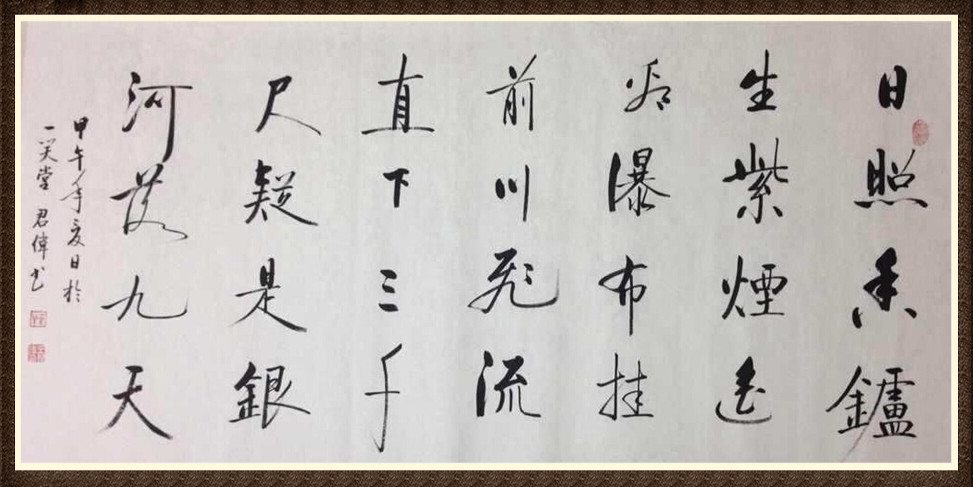 日照香鑪
生紫煙遙
看瀑布挂
前川飛流
直下三千
尺疑是銀
河落九天
甲午年夏日於
一笑堂 君偉书